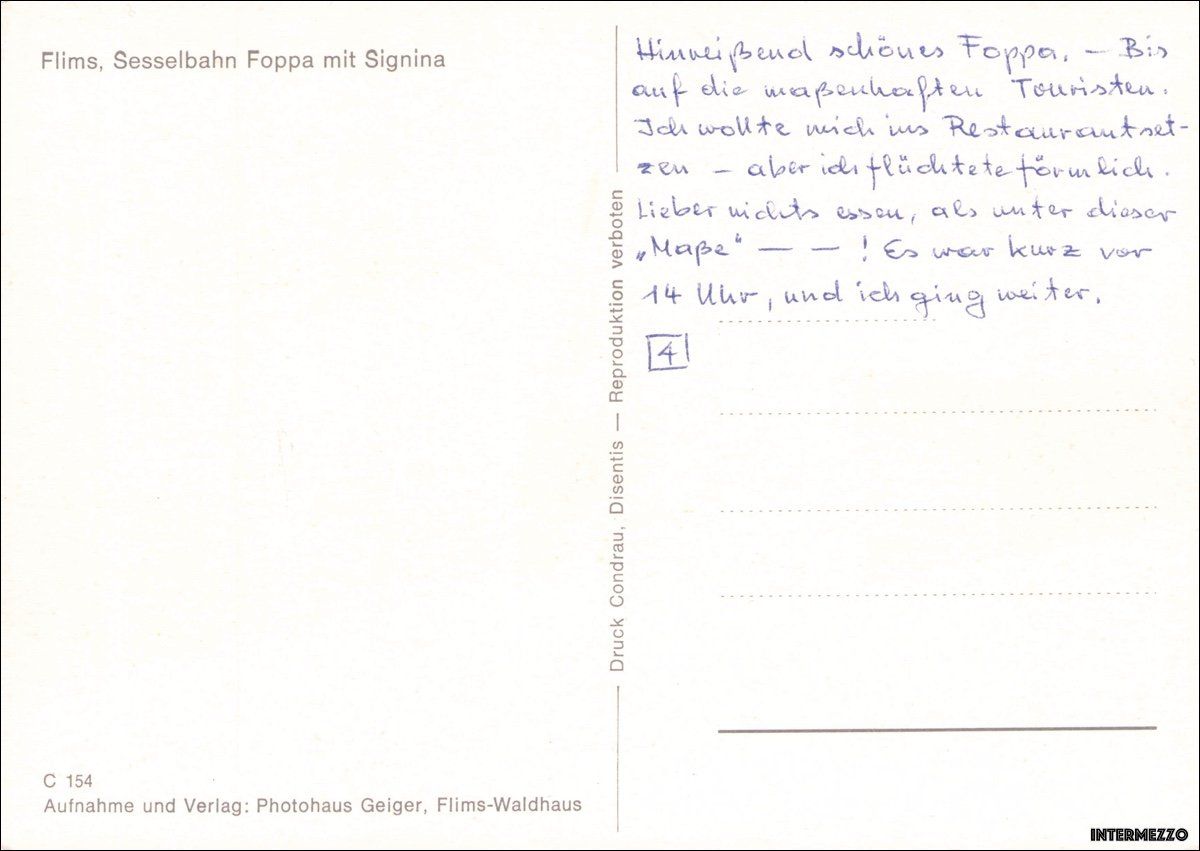 Flims, Sesselbahn Foppa mit Signina
Hinreißend schönes Foppa. – Bis
auf die maßenhaften Touristen.
Ich wollte mich ins Restaurant set-
zen – aber ich flüchtete förmlich.
Lieber nichts essen, als unter dieser
„Maße" — — ! Es war kurz vor
14 Uhr, und ich ging weiter.
4
Druck Condrau, Disentis — Reproduktion verboten
C 154
Aufnahme und Verlag: Photohaus Geiger, Flims-Waldhaus
INTERMEZZO